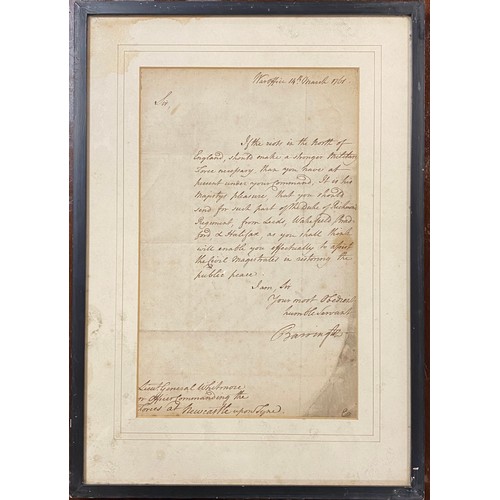 War Office 14th March 1761.
Sir,
If the riots in the North of
England, should make a stronger Military
Force necessary, than you have at
present under your Command, It is his
Majestys pleasure that you should
send for such part of the Duke of Richmonds
Regiment, from Leeds, Wakefield Brad
ford & Halifax as you shall think
will enable you effectually to assist
the Civil Magistrates in restoring the
public peace.
I am, Sir
Your most Obedient
humble Servant
Barrington
Lieut General Whitmore
or Officer Commanding the
Forces at Newcastle upon Tyne.